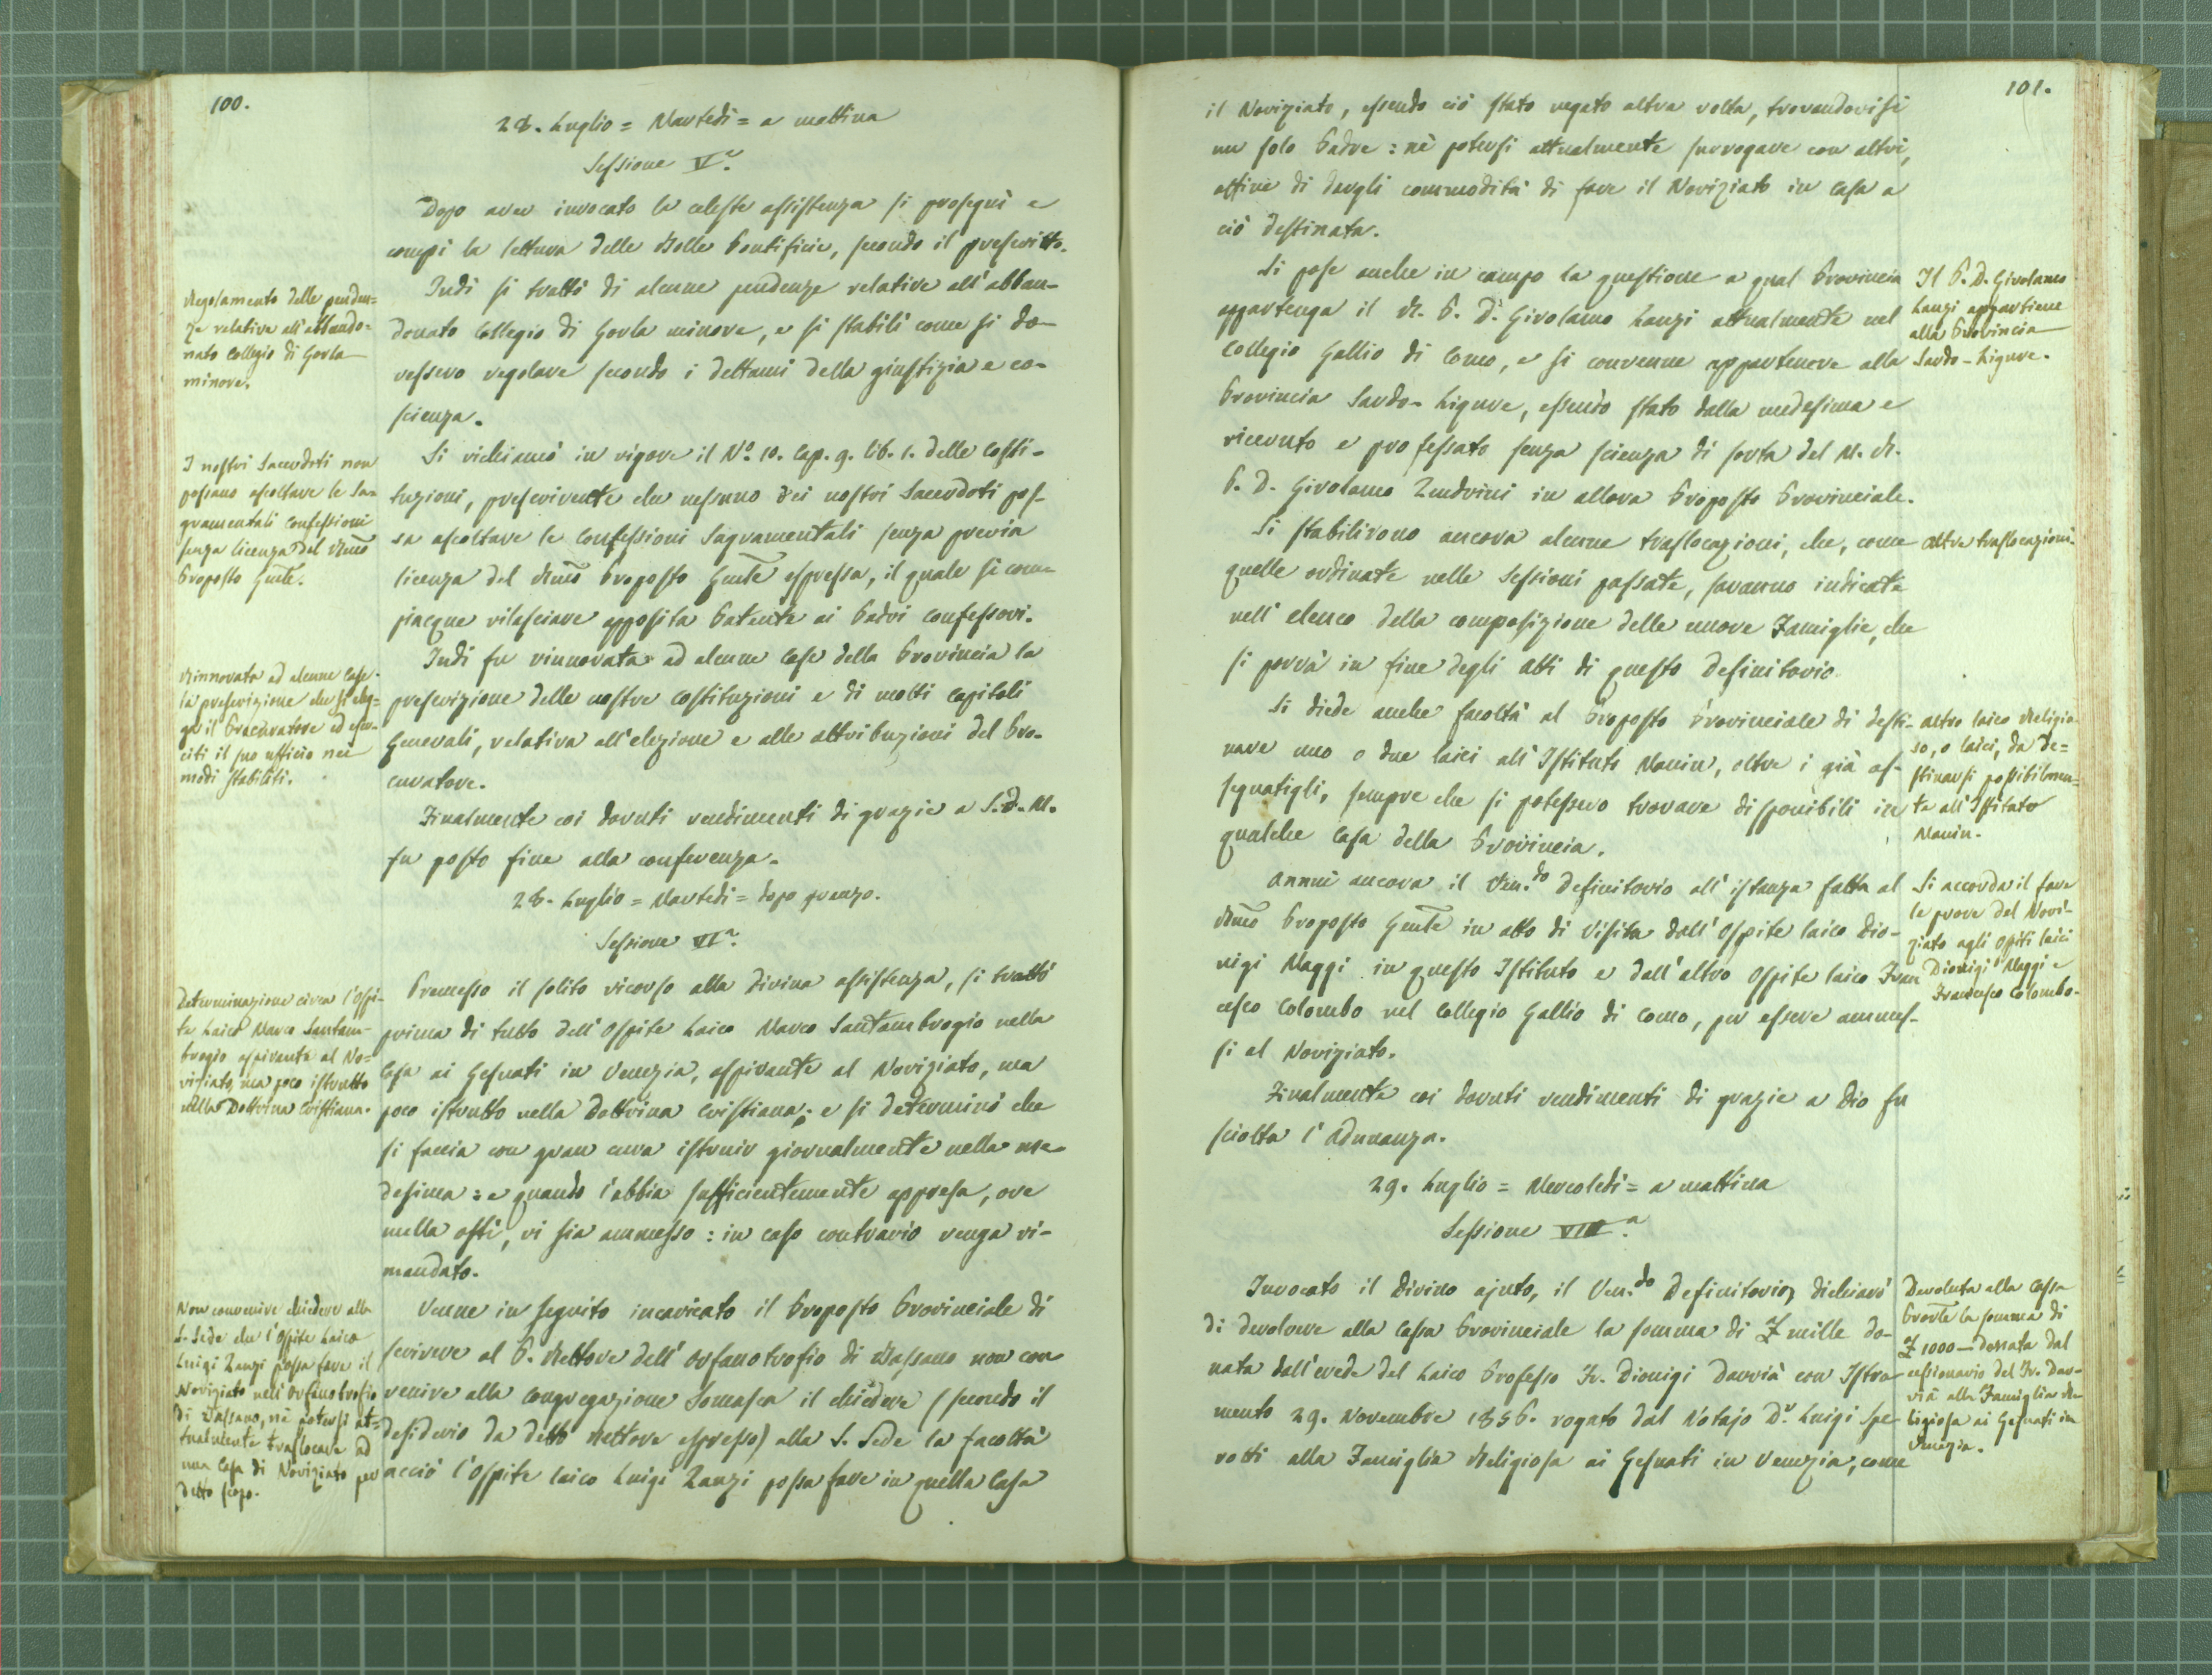 100.
28. Luglio = Martedì = a mattina
Sessione V.ª
Dopo aver invocato la celeste assistenza si proseguì e
compì la lettura delle Bolle Pontificie, secondo il prescritto.
Regolamento delle penden=
ze relative all'abbando=
nato Collegio di Gorla
minore.
Indi si trattò di alcune pendenze relative all'abban-
donato Collegio di Gorla minore, e si stabilì come si do-
vessero regolare secondo i dettami della giustizia e co-
scienza.
I nostri Sacerdoti non
possano ascoltare le Sa-
gramentali Confessioni
senza licenza del Rmo
Proposto Gnle.
Si richiamò in vigore il N.º 10. Cap. 9. lib. 1. delle Costi-
tuzioni, prescrivente che nessuno dei nostri Sacerdoti pos-
sa ascoltare le Confessioni Sagramentali senza previa
licenza del Rmo Proposto Gnle espressa, il quale si com-
piacque rilasciare apposita Patente ai Padri Confessori.
Rinnovata ad alcune Case
la prescrizione che si eleg-
ga il Procuratore ed eser-
citi il suo ufficio nei
modi stabiliti.
Indi fu rinnovata ad alcune Case della Provincia la
prescrizione delle nostre Costituzioni e di molti Capitoli
Generali, relativa all'elezione e alle attribuzioni del Pro-
curatore.
Finalmente coi dovuti rendimenti di grazie a S. D. M.
fu posto fine alla conferenza.
28. Luglio = Martedì = dopo pranzo.
Sessione VI.ª
Determinazione circa l'Ospi-
te Laico Marco Santam-
brogio aspirante al No=
viziato, ma poco istrutto
nella Dottrina Cristiana.
Premesso il solito ricorso alla divina assistenza, si trattò
prima di tutto dell'Ospite Laico Marco Santambrogio nella
Casa ai Gesuati in Venezia, aspirante al Noviziato, ma
poco istrutto nella Dottrina Cristiana; e si determinò che
si faccia con gran cura istruir giornalmente nella me-
desima: e quando l'abbia sufficientemente appresa, ove
nulla osti, vi sia ammesso: in caso contrario venga ri-
mandato.
Non convenire chiedere alla
S. Sede che l'Ospite Laico
Luigi Zanzi possa fare il
Noviziato nell'Orfanotrofio
di Bassano, nè potersi at=
tualmente traslocare ad
una Casa di Noviziato per
detto scopo.
Venne in seguito incaricato il Proposto Provinciale di
scrivere al P. Rettore dell'Orfanotrofio di Bassano non con
venire alla Congregazione Somasca il chiedere (secondo il
desiderio da detto Rettore espresso) alla S. Sede la facoltà
acciò l'Ospite laico Luigi Zanzi possa fare in quella Casa
101.
il Noviziato, essendo ciò stato negato altra volta, trovandovisi
un solo Padre: nè potersi attualmente surrogare con altri,
affine di dargli commodità di fare il Noviziato in Casa a
ciò destinata.
Si pose anche in campo la questione a qual Provincia
appartenga il R. P. D. Girolamo Lanzi attualmente nel
Collegio Gallio di Como, e si convenne appartenere alla
Provincia Sardo-Ligure, essendo stato dalla medesima e
ricevuto e professato senza scienza di sorta del M. R.
P. D. Girolamo Zendrini in allora Proposto Provinciale.
Il P. D. Girolamo
Lanzi appartiene
alla Provincia
Sardo-Ligure.
Si stabilirono ancora alcune traslocazioni, che, come
quelle ordinate nelle Sessioni passate, saranno indicate
nell'elenco della composizione delle nuove Famiglie, che
si porrà in fine degli atti di questo Definitorio.
Altre traslocazioni.
Si diede anche facoltà al Proposto Provinciale di desti-
nare uno o due laici all'Istituto Manin, oltre i già as-
segnatigli, sempre che si potessero trovare disponibili in
qualche Casa della Provincia.
Altro laico Religio-
so, o laici, da de=
stinarsi possibilmen=
te all'Istituto
Manin.
Annuì ancora il Ven.do Definitorio all'istanza fatta al
Rmo Proposto Gnle in atto di Visita dall'Ospite laico Dio-
nigi Maggi in questo Istituto e dall'altro Ospite laico Fran
cesco Colombo nel Collegio Gallio di Como, per essere ammes-
si al Noviziato.
Si accorda il fare
le prove del Novi-
ziato agli Ospiti laici
Dionigi Maggi e
Francesco Colombo.
Finalmente coi dovuti rendimenti di grazie a Dio fu
sciolta l'Adunanza.
29. Luglio = Mercoledì = a mattina
Sessione VII.ª
Invocato il Divino ajuto, il Ven.do Definitorio dichiarò
di devolvere alla Cassa Provinciale la somma di £ mille do-
nata dall'erede del Laico Professo Fr. Dionigi Darvià con Istro-
mento 29. Novembre 1856. rogato dal Notajo D.r Luigi Spe-
rotti alla Famiglia Religiosa ai Gesuati in Venezia, come
Devoluta alla Cassa
Provle la somma di
£ 1000 — donata dal
cessionario del Fr. Dar-
vià alla Famiglia Re
ligiosa ai Gesuati in
Venezia.